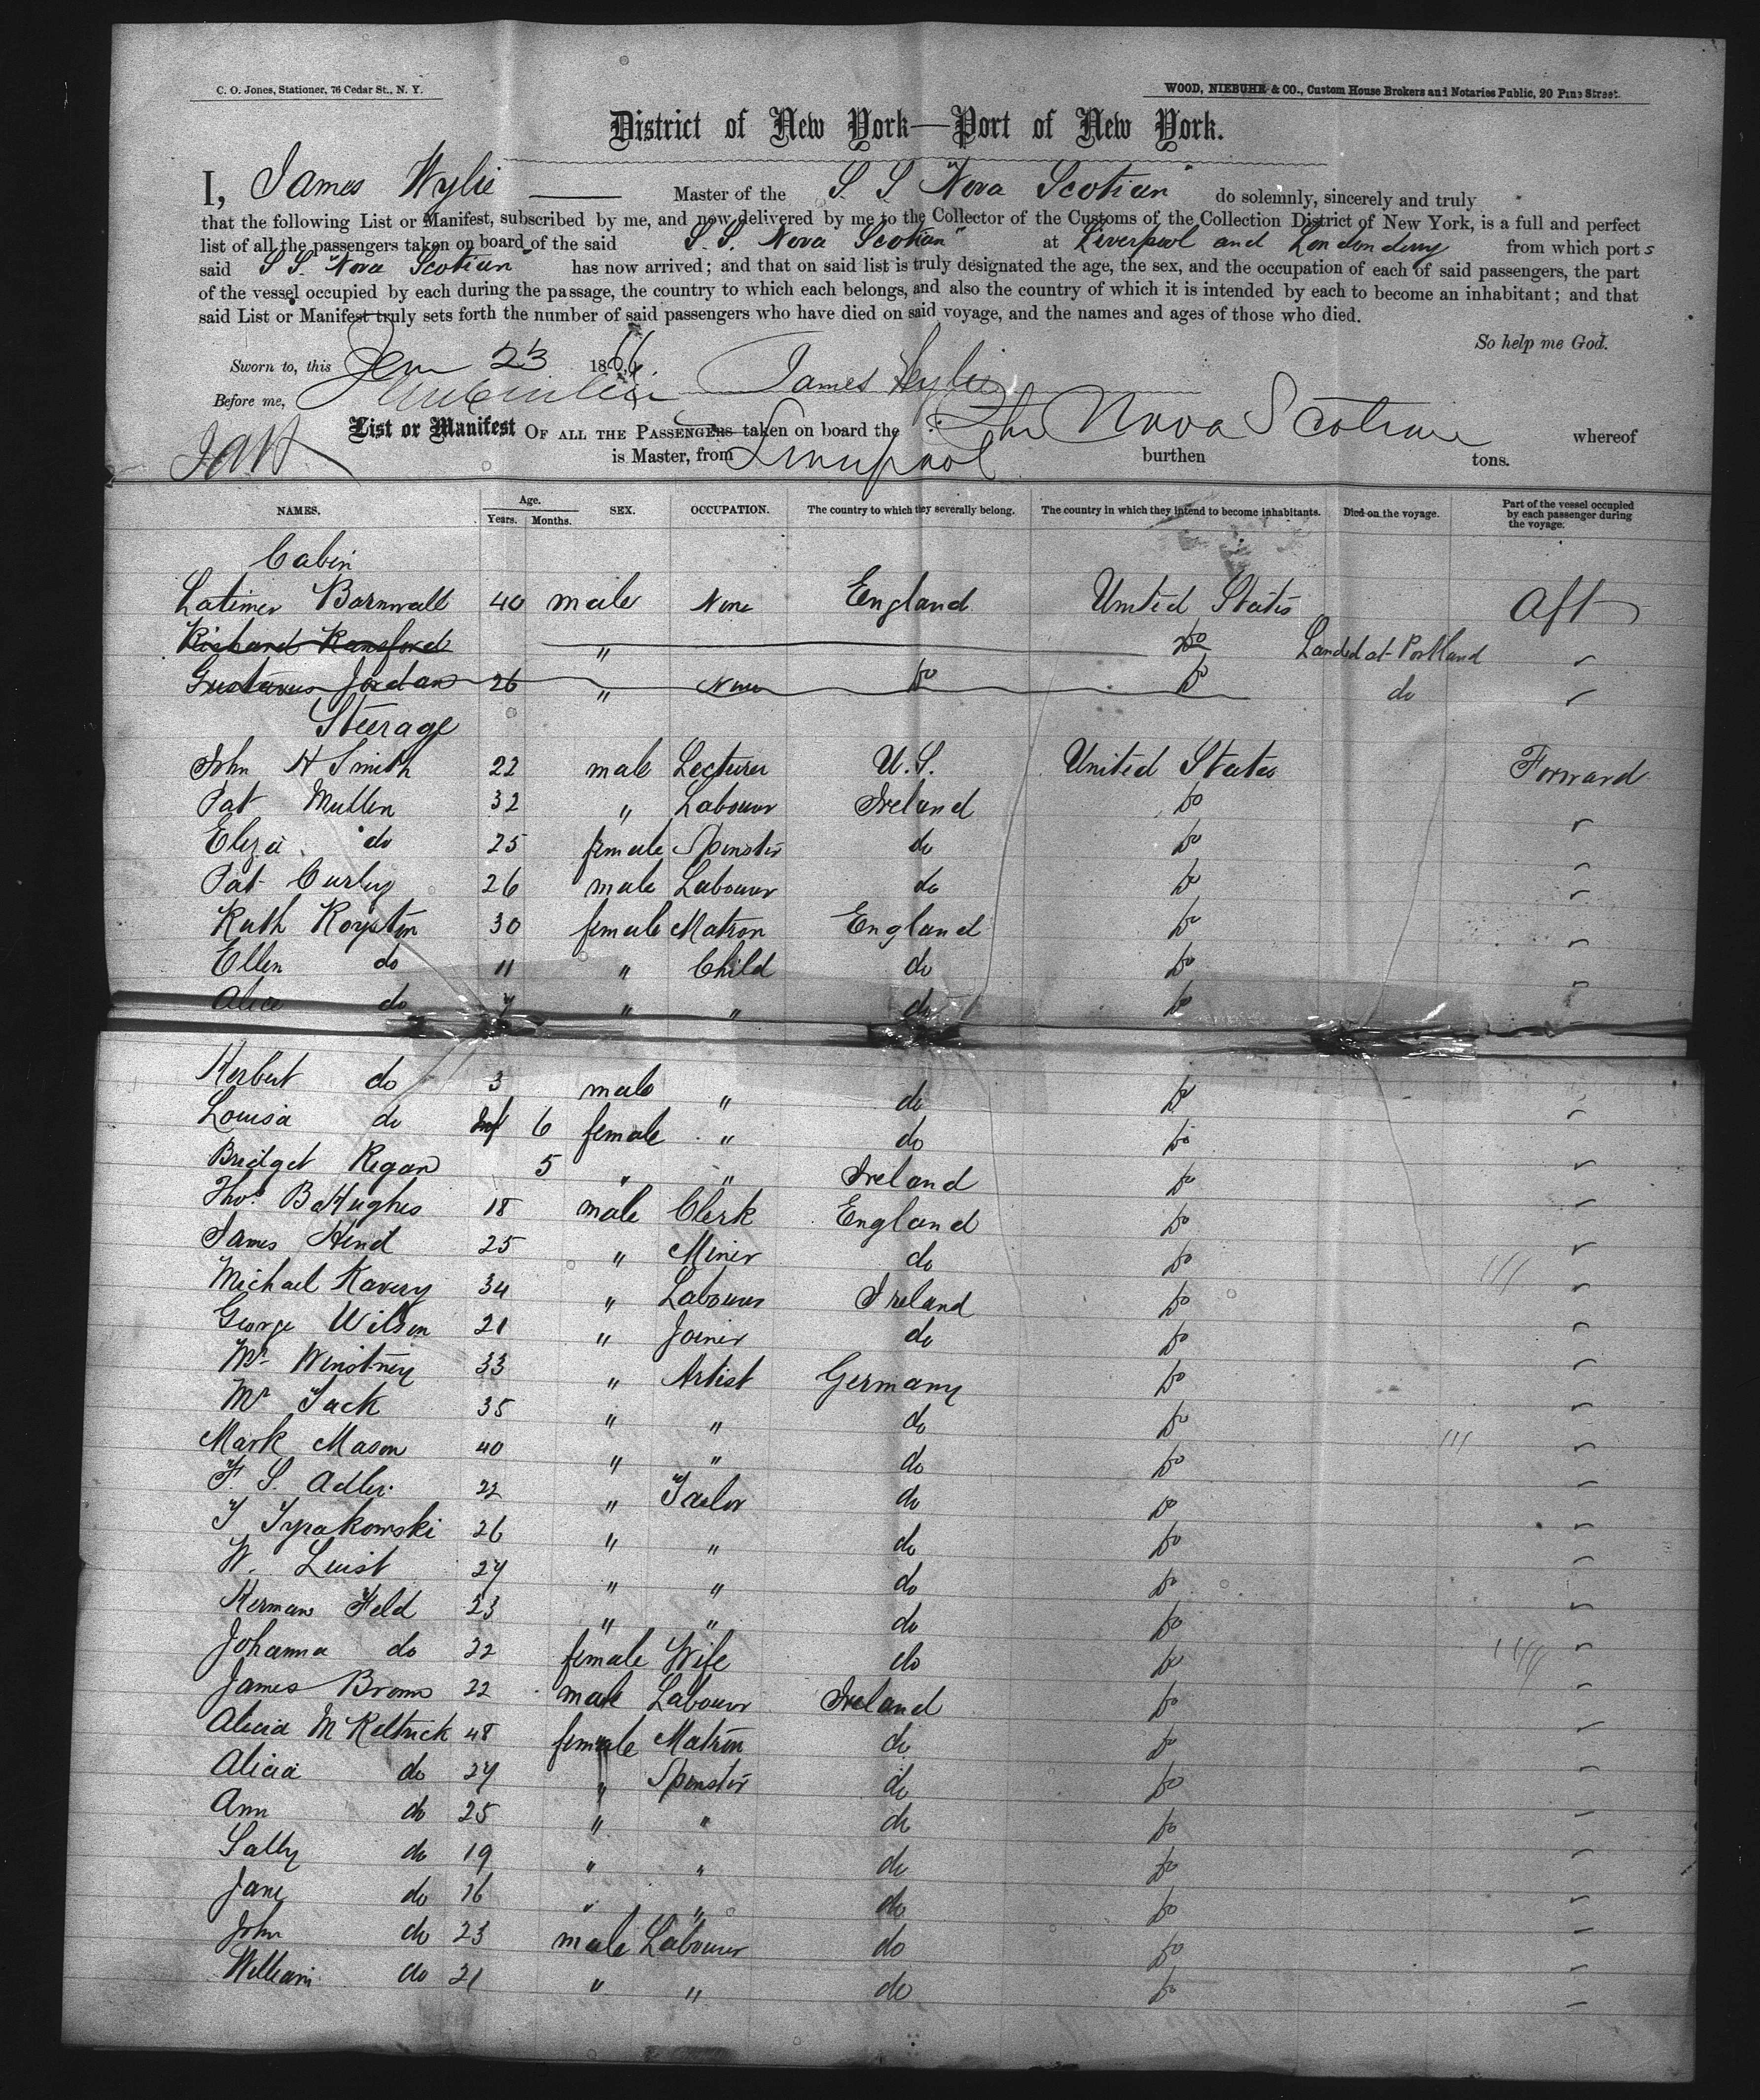 C. O. Jones, Stationer, 76 Cedar St., N. Y.
WOOD, NIEBUHR & CO., Custom House Brokers and Notaries Public, 20 Pine Street.
District of New York—Port of New York.
I, James Wylie Master of the S. S. "Nova Scotian" do solemnly, sincerely and truly
that the following List or Manifest, subscribed by me, and now delivered by me to the Collector of the Customs of the Collection District of New York, is a full and perfect
list of all the passengers taken on board of the said S. S. "Nova Scotian" at Liverpool and Londonderry from which ports
said S S. "Nova Scotian" has now arrived; and that on said list is truly designated the age, the sex, and the occupation of each of said passengers, the part
of the vessel occupied by each during the passage, the country to which each belongs, and also the country of which it is intended by each to become an inhabitant; and that
said List or Manifest truly sets forth the number of said passengers who have died on said voyage, and the names and ages of those who died.
So help me God.
Sworn to, this Jan 23 1866 James Wylie
Before me,
List or Manifest OF ALL THE PASSENGERS taken on board the Nova Scotian whereof
is Master, from Liverpool burthen tons.
NAMES. Age. Years. Months. SEX. OCCUPATION. The country to which they severally belong. The country in which they intend to become inhabitants. Died on the voyage. Part of the vessel occupied by each passenger during the voyage.
Cabin
Latimer Barnwall 40 male None England United States Aft
Richard Ransford " Do Landed at Portland "
Gustavus Jordan 26 " None Do Do do "
Steerage
John H Smith 22 male Lecturer U.S. United States Forward
Pat Mullen 32 " Labourer Ireland Do "
Eliza do 25 female Spinster do Do "
Pat Curley 26 male Labourer do Do "
Ruth Royston 30 female Matron England Do "
Ellen do 11 " Child do Do "
Alice do 7 " " do Do "
Herbert do 3 male " do Do "
Louisa do Inf 6 female " do Do "
Bridget Regan 5 " " Ireland Do "
Thos. B Hughes 18 male Clerk England Do "
James Hind 25 " Miner do Do "
Michael Kavery 34 " Labourer Ireland Do "
George Wilson 21 " Joiner do Do "
Mr 33 " Artist Germany Do "
Mr Jack 35 " " do Do "
Mark Mason 40 " " do Do "
F. S. Adler 22 " Tailor do Do "
26 " " do Do "
W. 27 " " do Do "
Herman Feld 23 " " do Do "
Johanna do 22 female Wife do Do "
James Brown 22 male Labourer Ireland Do "
Alicia McKeltrick 48 female Matron do Do "
Alicia do 27 " Spinster do Do "
Ann do 25 " " do Do "
Sally do 19 " " do Do "
Jane do 16 " " do Do "
John do 23 male Labourer do Do "
William do 21 " " do Do "